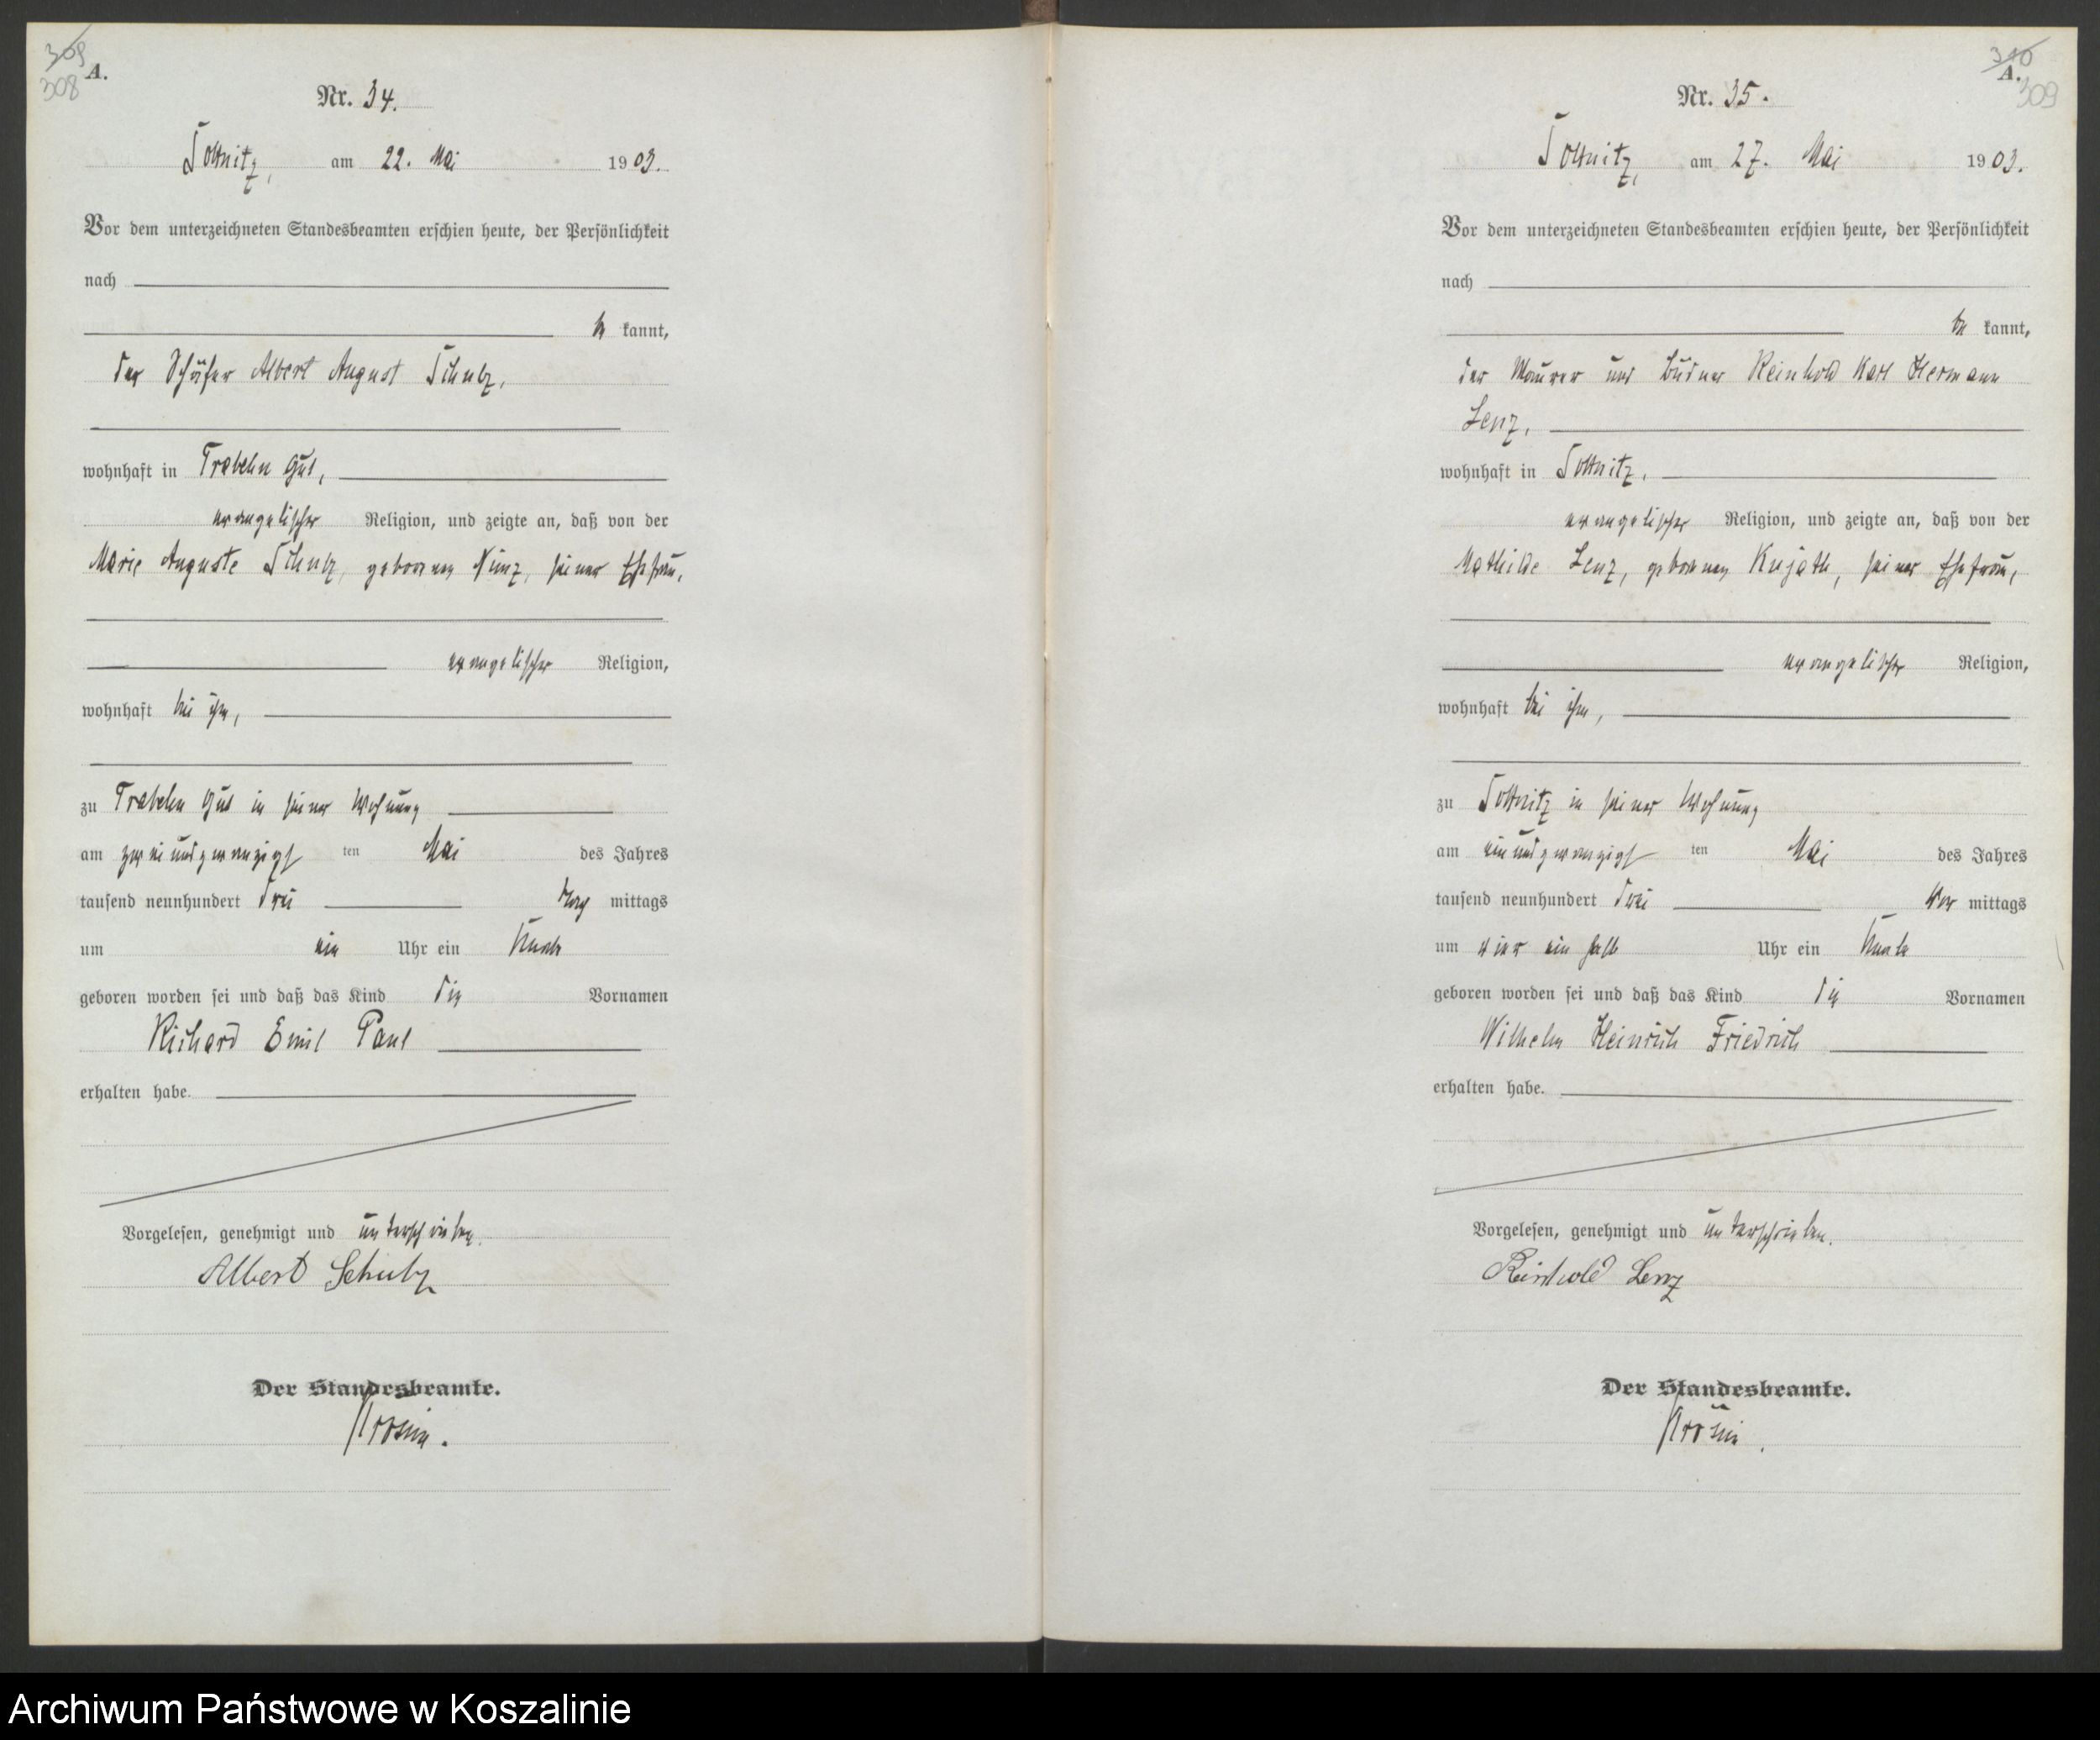 309
308
A.
Nr. 34.
Soltnitz, am 22. Mai 1903.
Vor dem unterzeichneten Standesbeamten erschien heute, der Persönlichkeit
nach
be kannt,
der Schäfer Albert August Schulz,
wohnhaft in Trabehn Gut,
evangelischer Religion, und zeigte an, daß von der
Marie Auguste Schulz, geborenen Künz, seiner Ehefrau,
evangelischer Religion,
wohnhaft bei ihm,
zu Trabehn Gut in seiner Wohnung
am zweiundzwanzigsten Mai des Jahres
tausend neunhundert drei Vor mittags
um ein Uhr ein Knabe
geboren worden sei und daß das Kind die Vornamen
Richard Emil Paul
erhalten habe.
Vorgelesen, genehmigt und unterschrieben.
Albert Schulz
Der Standesbeamte.
310
A.
309
Nr. 35.
Soltnitz, am 27. Mai 1903.
Vor dem unterzeichneten Standesbeamten erschien heute, der Persönlichkeit
nach
be kannt,
der Maurer und Büdner Reinhold Karl Hermann
Lenz,
wohnhaft in Soltnitz,
evangelischer Religion, und zeigte an, daß von der
Mathilde Lenz, geborenen Kujath, seiner Ehefrau,
evangelischer Religion,
wohnhaft bei ihm,
zu Soltnitz in seiner Wohnung
am einundzwanzigsten Mai des Jahres
tausend neunhundert drei Vor mittags
um vier ein halb Uhr ein Knabe
geboren worden sei und daß das Kind die Vornamen
Wilhelm Heinrich Friedrich
erhalten habe.
Vorgelesen, genehmigt und unterschrieben.
Reinhold Lenz
Der Standesbeamte.
Archiwum Państwowe w Koszalinie